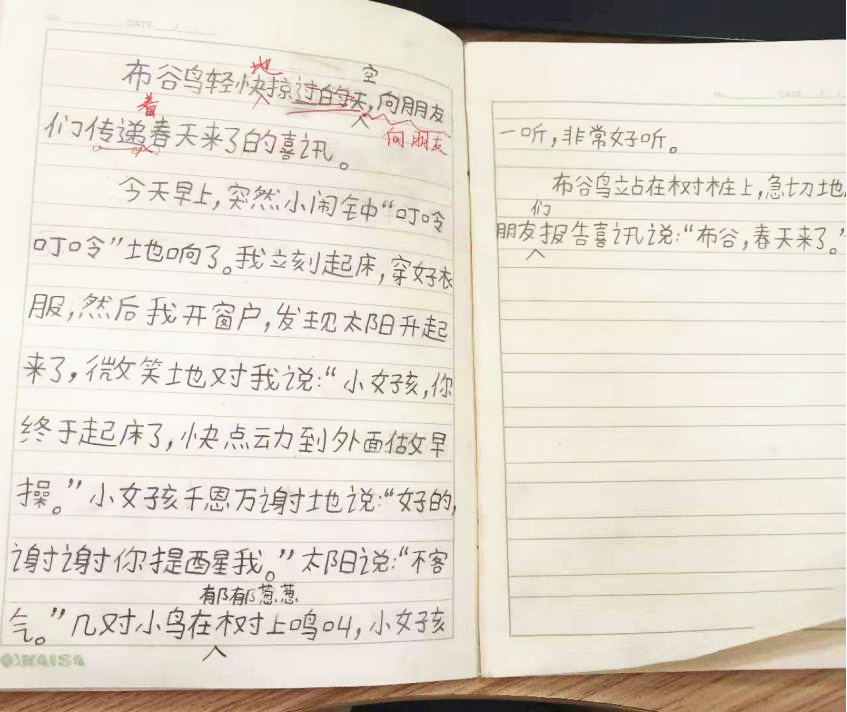 No. DATE / /
地 空
布谷鸟轻快掠过的天,向朋友
着 向朋友
们传递春天来了的喜讯。
今天早上,突然小闹钟“叮呤
叮呤”地响了。我立刻起床,穿好衣
服,然后我开窗户,发现太阳升起
来了,微笑地对我说:“小女孩,你
终于起床了,快点云力到外面估攵早
操。”小女孩千恩万谢地说:“好的,
谢谢你提醒我。”太阳说:“不客
郁郁葱葱
气。”几对小鸟在树上鸣叫,小女孩
KAISA
No. DATE / /
一听,非常好听。
布谷鸟站在树桩上,急切地
们
朋友报告喜讯说:“布谷,春天来了。”